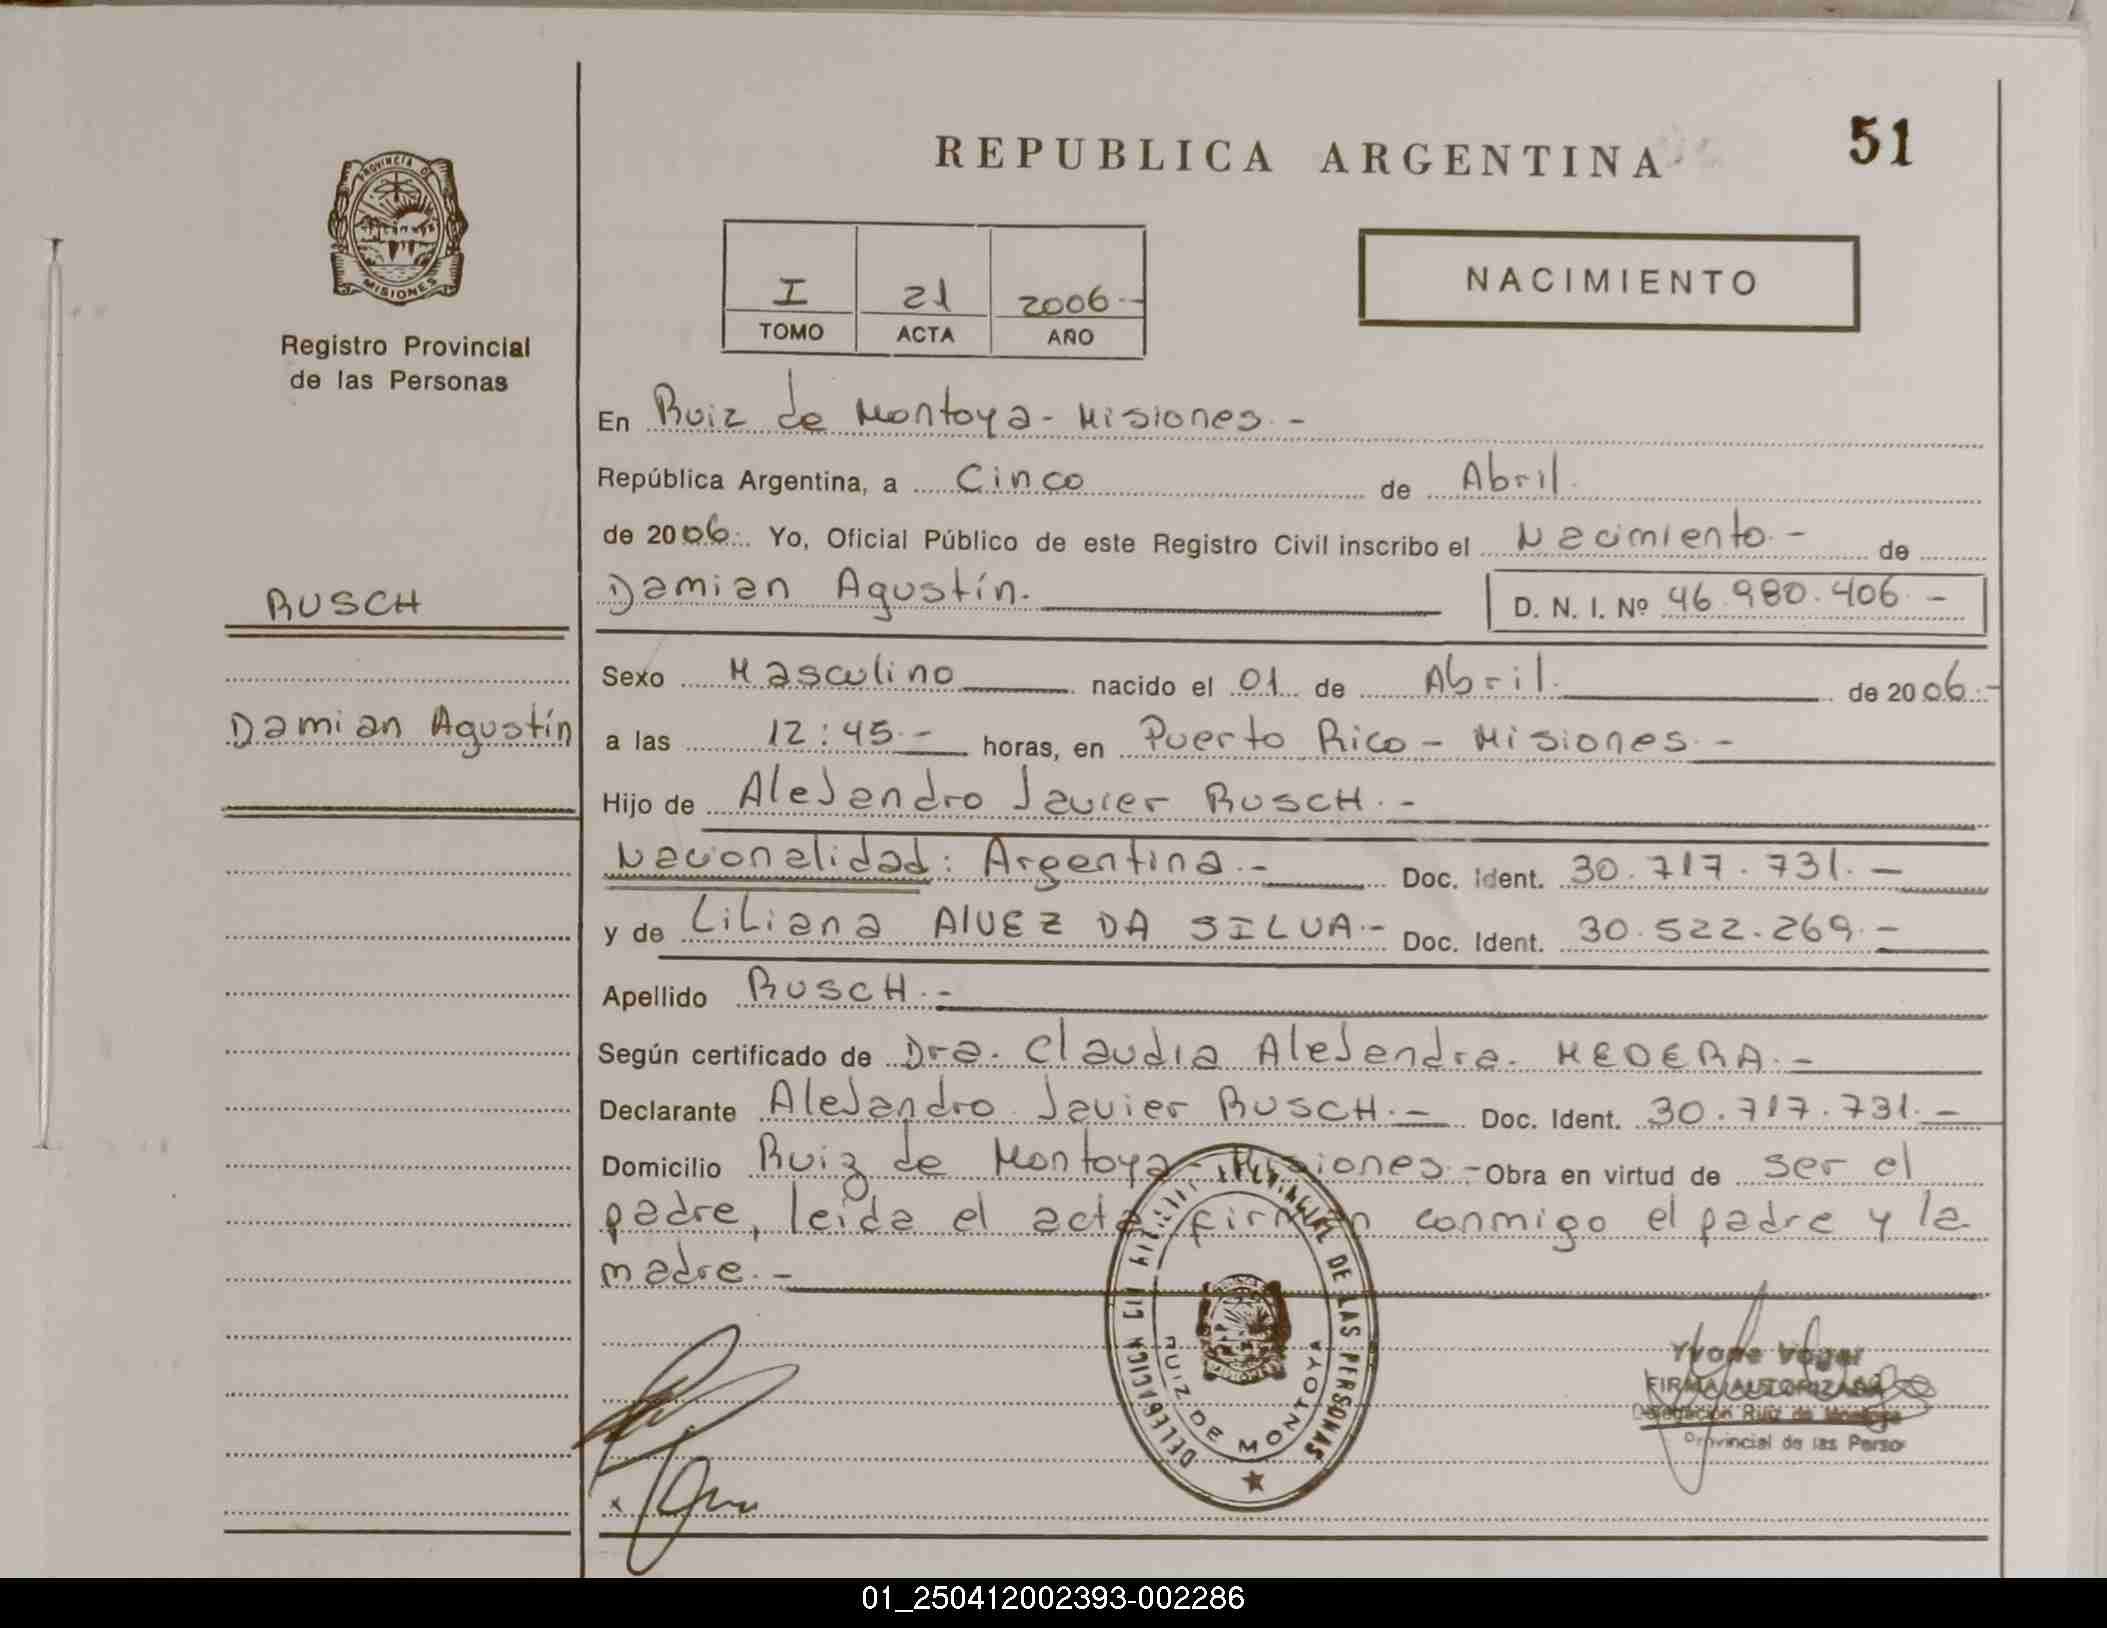 REPUBLICA ARGENTINA
51
PROVINCIA DE
MISIONES
Registro Provincial
de las Personas
I 21 2006.-
TOMO ACTA AÑO
NACIMIENTO
En Ruiz de Montoya - Misiones.-
República Argentina, a Cinco de Abril.
de 2006.. Yo, Oficial Público de este Registro Civil inscribo el Nacimiento.- de
RUSCH
Damian Agustín.
D. N. I. Nº 46.980.406.-
Sexo Masculino nacido el 01 de Abril. de 2006.-
Damian Agustín
a las 12:45.- horas, en Puerto Rico - Misiones.-
Hijo de Alejandro Javier RUSCH.-
Nacionalidad: Argentina.- Doc. Ident. 30.717.731.-
y de Liliana AlVEZ DA SILVA.- Doc. Ident. 30.522.269.-
Apellido RUSCH.-
Según certificado de Dra. Claudia Alejandra. MEDERA.-
Declarante Alejandro Javier RUSCH.- Doc. Ident. 30.717.731.-
Domicilio Ruiz de Montoya - Misiones.- Obra en virtud de ser el
padre, leida el acta firman conmigo el padre y la
madre.-
DELEGACION DE LAS PERSONAS
RUIZ DE MONTOYA
FIRMA AUTORIZADA
Delegación Ruiz de Montoya
Provincial de las Perso
01_250412002393-002286